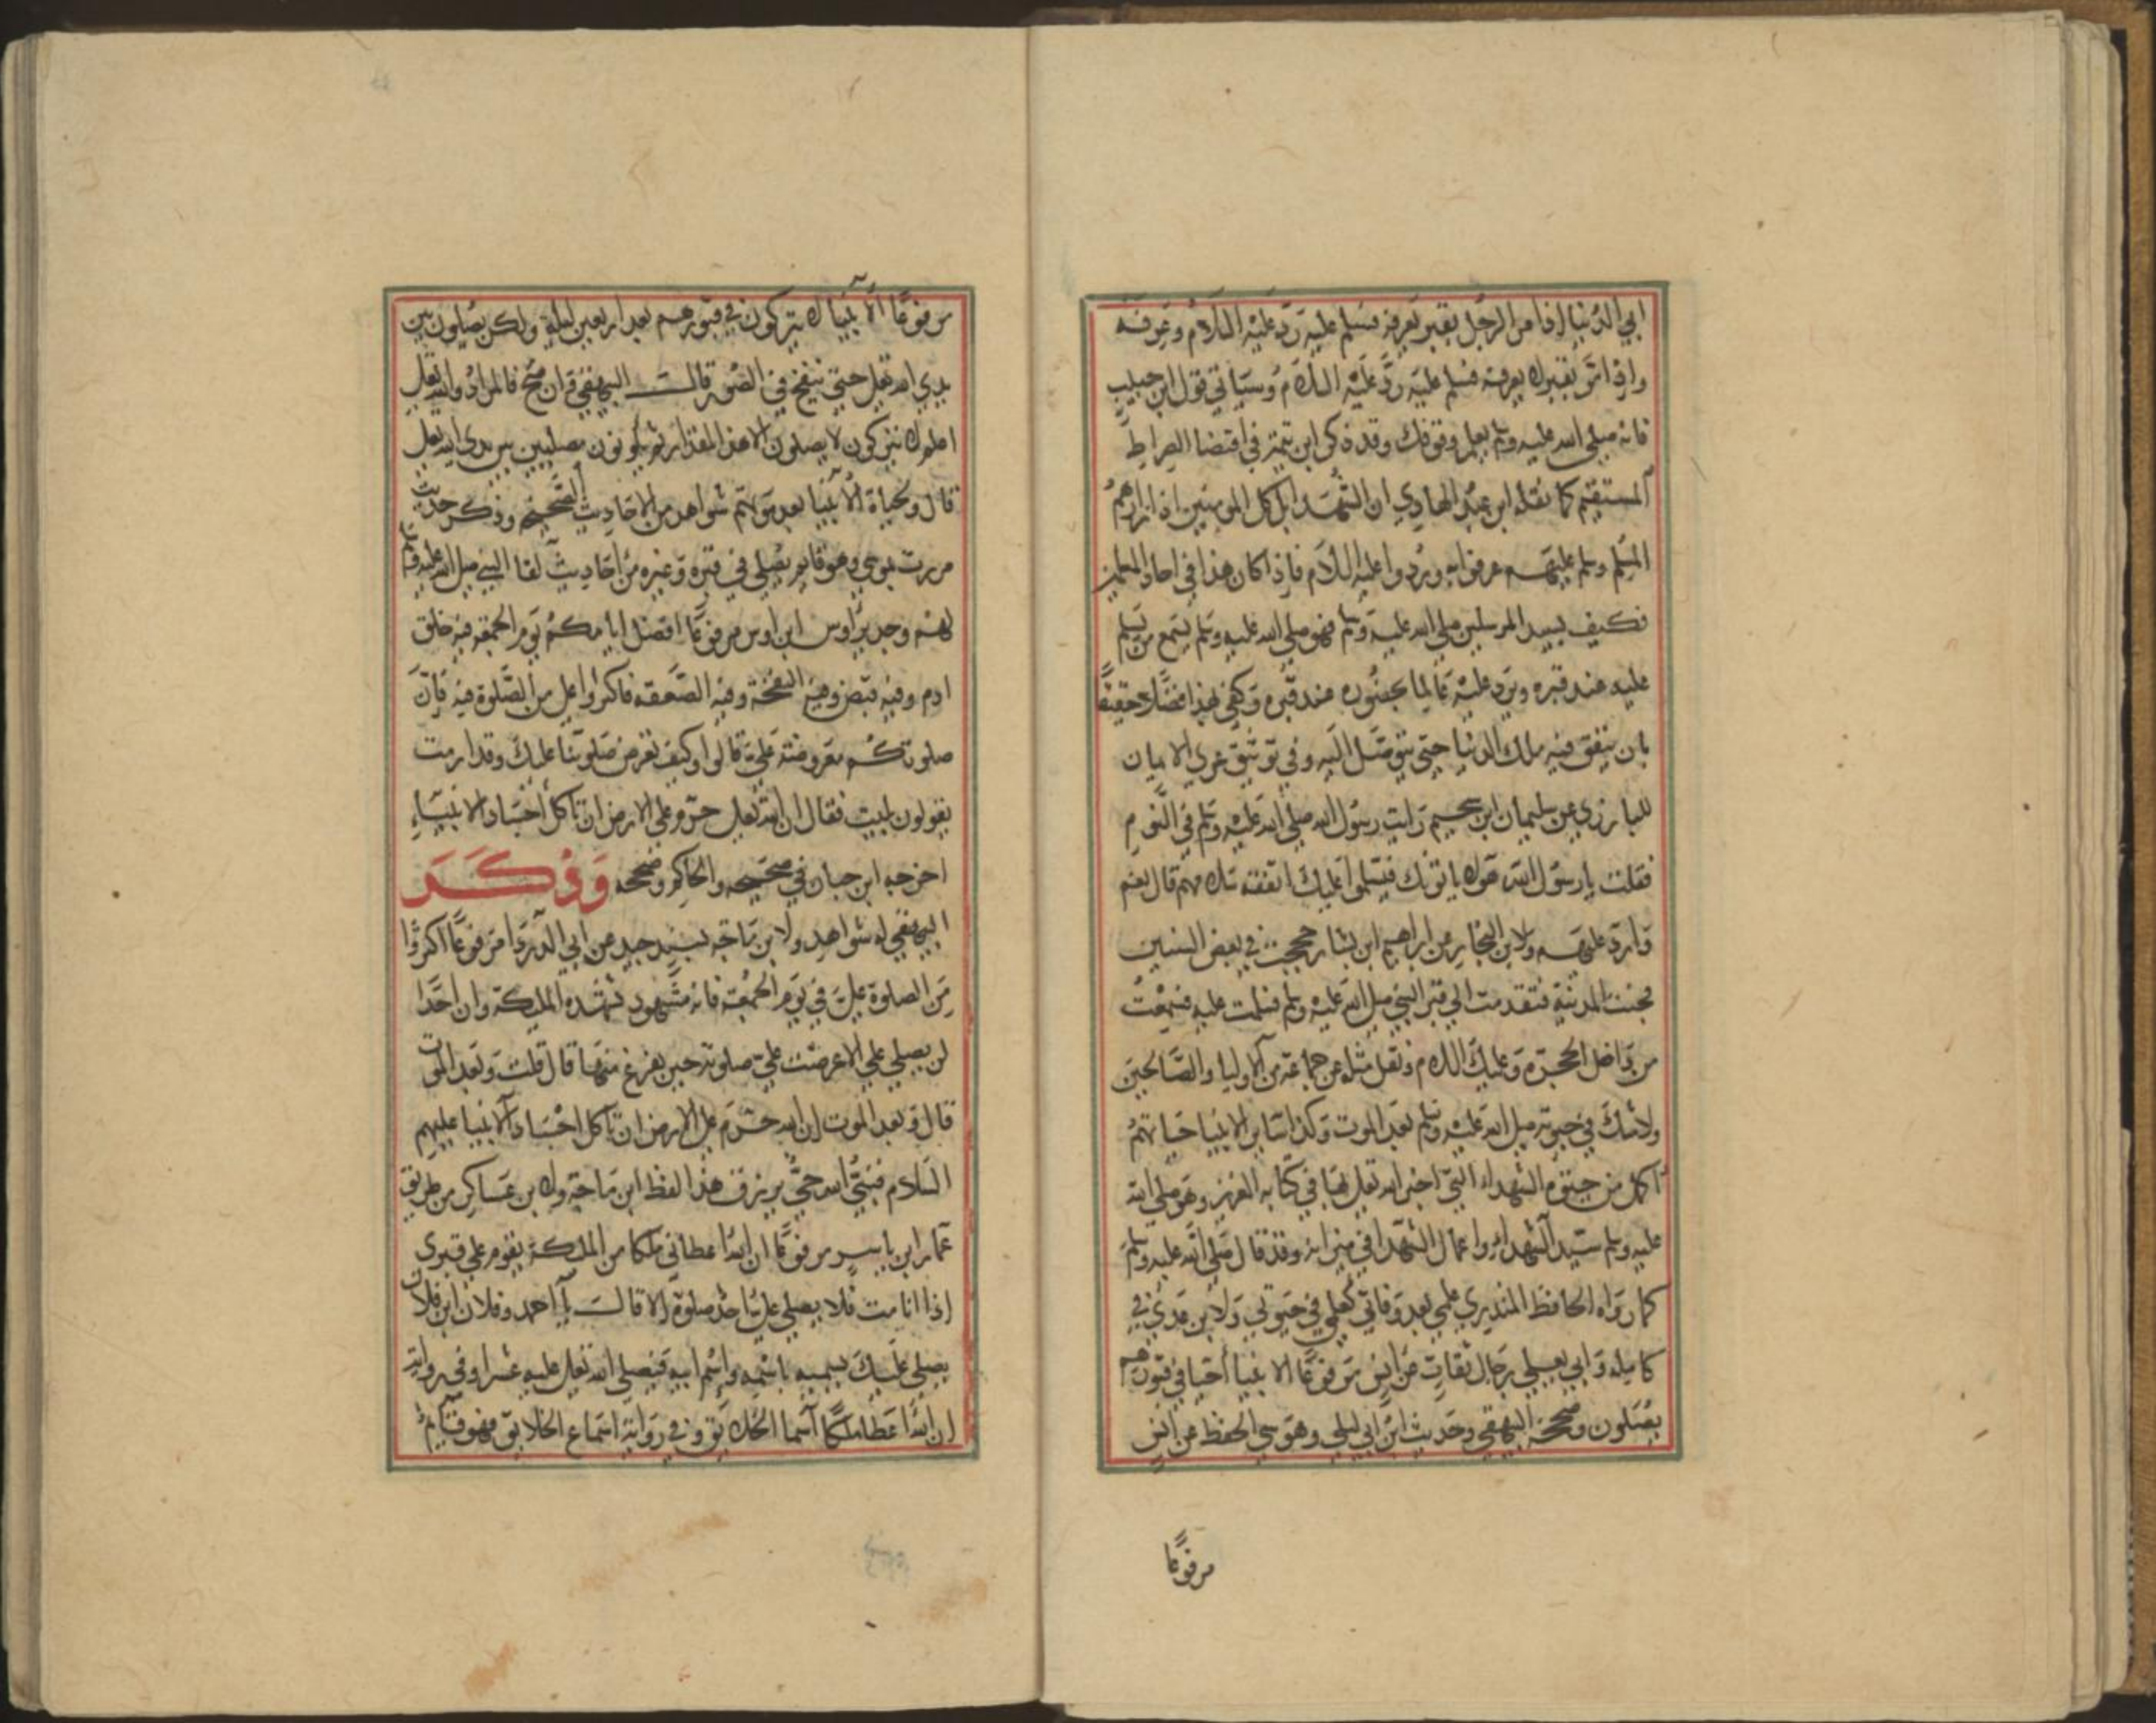 ابي الدنيا اذا مر الرجل بقبر يعرفه فسلم عليه رد عليه السلام وعرفه
واذا مر بقبر لا يعرفه فسلم عليه رد عليه السلام وسياتي قول ابن حبيب
فانه صلى الله عليه وسلم يعلم وقوفك وقد ذكر ابن تيمية في اقتضا الصراط
المستقيم كما نقله ابن عبد الهادي ان الشهدا بل كل المومنين اذا زارهم
المسلم وسلم عليهم عرفوا به وردوا عليه السلام فاذا كان هذا في احاد المسلمين
فكيف بسيد المرسلين صلى الله عليه وسلم فهو صلى الله عليه وسلم يسمع من يسلم
عليه عند قبره ويرد عليه عالما بحضوره عند قبره وكفى بهذا فضلا حقيقا
بان ينفق فيه ملك الدنيا حتى يتوصل اليه وفي توثيق عرى الايمان
للبارزي عن سليمان ابن سحيم رايت رسول الله صلى الله عليه وسلم في النوم
فقلت يا رسول الله هولا ياتونك فيسلموا عليك اتفقه سلامهم قال نعم
وارد عليهم ولابن النجار عن ابراهيم ابن بشار حججت في بعض السنين
فجئت المدينة فتقدمت الى قبر النبي صلى الله عليه وسلم فسلمت عليه فسمعت
من داخل الحجرة وعليك السلام ونقل مثله عن جماعة من الاوليا والصالحين
ولا شك في حيوته صلى الله عليه وسلم بعد الموت وكذا ساير الانبيا حياتهم
اكمل من حيوة الشهداء التي اخبر الله تعالى بها في كتابه العزيز وهو صلى الله
عليه وسلم سيد الشهداء واعمال الشهدا في ميزانه وقد قال صلى الله عليه وسلم
كما رواه الحافظ المنذري علمي بعد وفاتي كعلمي في حيوتي ولابن عدي في
كامله وابي يعلى برجال ثقات عن انس مرفوعا الانبيا احيا في قبورهم
يصلون وصححه البيهقي وحديث ابن ابي ليلى وهو سي الحفظ عن انس
مرفوعا
مرفوعا الانبيا لا يتركون في قبورهم بعد اربعين ليلة ولكن يصلون بين
يدي الله تعالى حتى ينفخ في الصور قالت البيهقي ان صح فالمراد والله تعالى
اعلم لا يتركون لا يصلون الا هذا المقدار ثم يكونون مصلين بين يدي الله تعالى
قال ولحياة الانبيا بعد موتهم شواهد من الاحاديث الصحيحه وذكر حديث
مررت بموسى وهو قايم يصلي في قبره وغيره من احاديث لقا النبي صلى الله عليه وسلم
لهم وحديث اوس ابن اوس مرفوعا افضل ايامكم يوم الجمعة فيه خلق
ادم وفيه قبض وفيه النفخة وفيه الصعقه فاكثروا علي من الصلوة فيه فان
صلوتكم معروضة علي قالوا وكيف تعرض صلوتنا عليك وقد ارمت
يقولون بليت فقال ان الله تعالى حرم على الارض ان تاكل اجساد الانبياء
اخرجه ابن حبان في صحيحه والحاكم وصححه وذكر
البيهقي له شواهد ولابن ماجه بسند جيد عن ابي الدردا مرفوعا اكثروا
من الصلوة علي في يوم الجمعة فانه مشهود تشهده الملايكة وان احدا
لن يصلي علي الا عرضت علي صلوته حين يفرغ منها قال قلت وبعد الموت
قال وبعد الموت ان الله حرم على الارض ان تاكل اجساد الانبيا عليهم
السلام فنبي الله حي يرزق هذا لفظ ابن ماجة ولابن عساكر من طريق
عمار ابن ياسر مرفوعا ان الله اعطاني ملكا من الملايكة يقوم على قبري
اذا انا مت فلا يصلي علي احد صلوة الا قالت يا احمد وفلان ابن فلان
يصلي عليك يسميه باسمه واسم ابيه فيصلي الله تعالى عليه عشرا وفي رواية
ان الله اعطا ملكا اسما الخلايق وفي رواية اسماع الخلايق فهو قايم